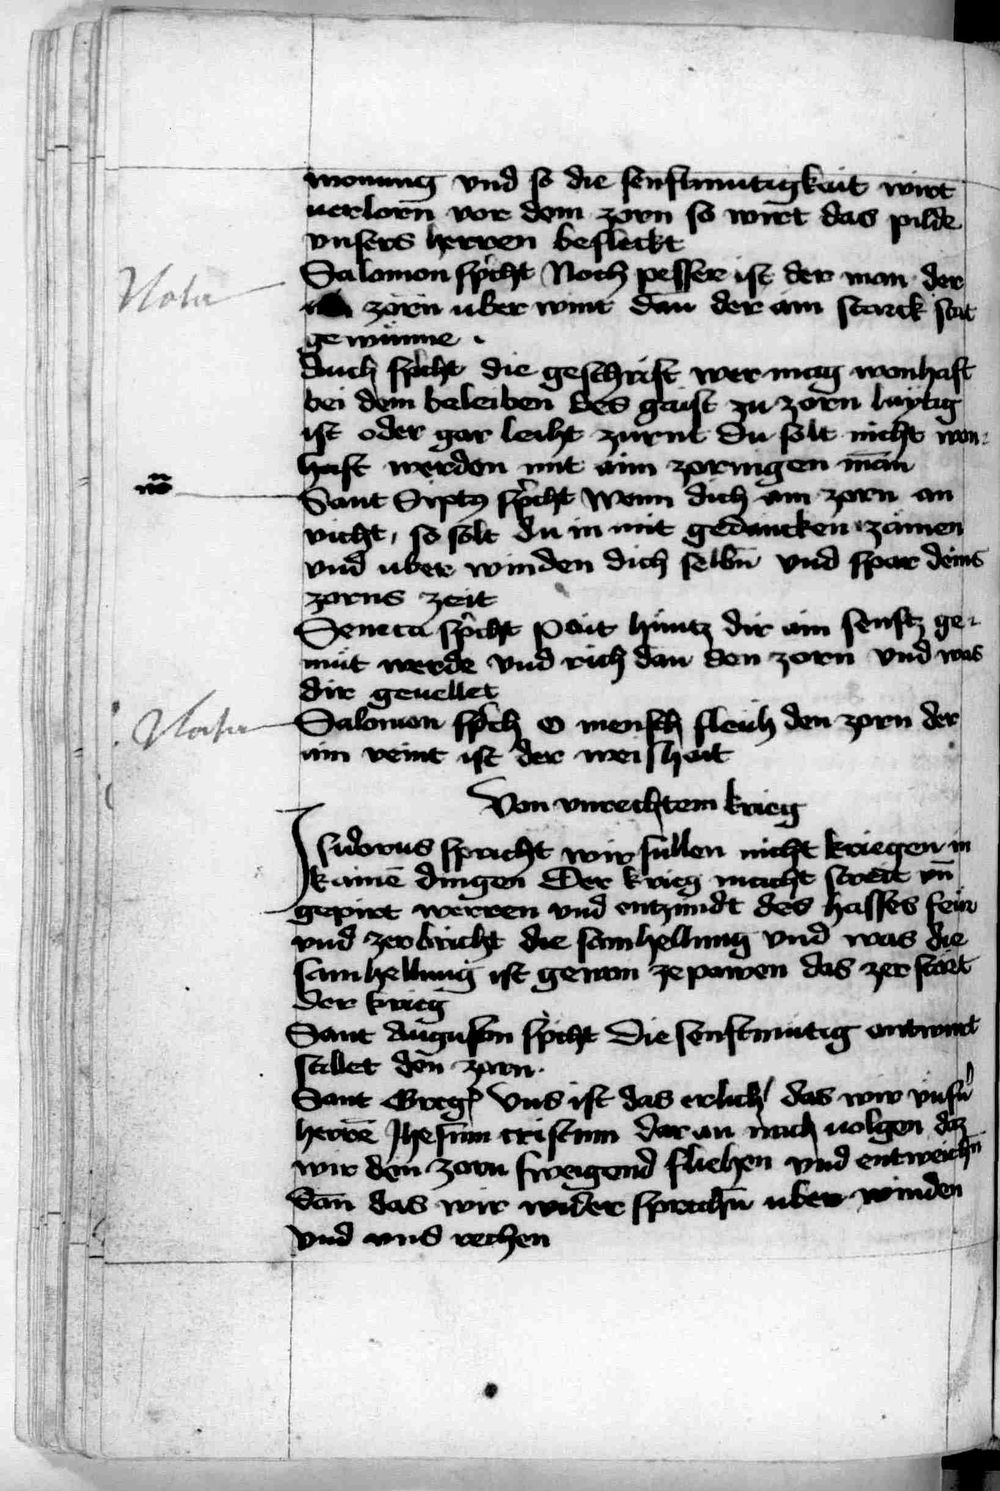 wonung vnd so die senftmutigkait wirt
uerlorn vor dem zorn so wirt das pilde
vnsers herren befleckt
Nota
Salomon spricht Noch pesser ist der man der
zorn uber wint dan der ain starck stat
gewinne .
Auch spricht die geschrift wer mag wonhaft
bei dem beleiben des gaist zu zorn laytig
ist oder gar leiht zurnt Du solt nicht won-
haft werden mit aim zornigen man
no
Sant Sixtus spricht Wenn dich ain zorn an
vicht, so solt du in mit gedancken zämen
vnd uber winden dich selbn vnd spar deins
zorns zeit
Seneca spricht Pait hintz dir ain senftz ge-
müt werde vnd rich dan den zorn vnd was
dir geuellet
Nota
Salomon sprich O mensch fleuh den zorn der
ain veint ist der weishait
Von vnrechtem krieg
Isidorus spricht wir sullen nicht kriegen in
kainē dingen Der krieg macht streit vn̄
gepirt werren vnd entzündt des hasses feür
vnd zerbricht die samhellung vnd was die
samhellung ist gewon ze pawen das zerstört
der krieg
Sant Augustin spricht Die senftmütig antwurt
stillet den zorn .
Sant Greg᷒ Vns ist das erlich das wir vnsn̄
herrē Jhesum cristum dar an nach uolgen daz
wir den zorn sweigend fliehen vnd entweichn̄
dan das wir wider sprechn̄ uber winden
vnd vns rechen